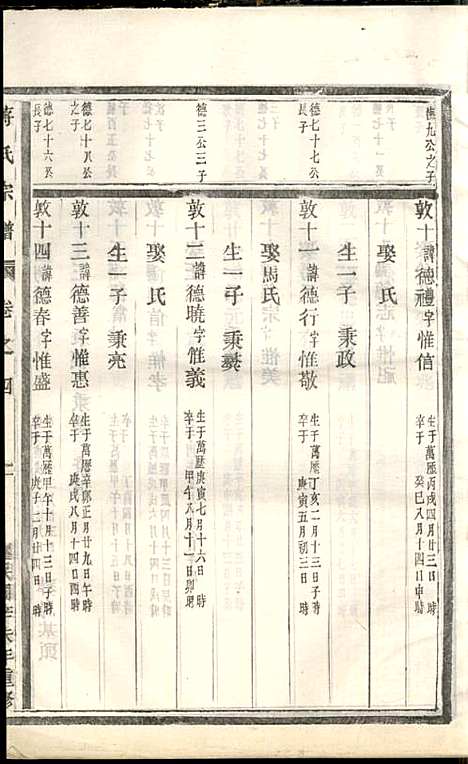 德九公之子
敦十諱德禮字惟信 生于萬厯丙戌四月廿三日 時 卒于 癸巳八月十四日申時
娶 氏
生一子 秉政
德七十七公長子
敦十一諱德行字惟敬 生于萬厯丁亥二月十三日子時 卒于 庚寅五月初三日 時
娶馬氏
生一子 秉
德三公三子
敦十二諱德曉字惟義 生于萬厯庚寅七月十六日 時 卒于 甲午八月十一日卯時
娶 氏
生一子 秉亮
德七十八公之子
敦十三諱德善字惟惠 生于萬厯辛卯正月廿九日午時 卒于 庚戌八月十四日酉時
德七十六公長子
敦十四諱德春字惟盛 生于萬厯甲午十月十三日子時 卒于 庚子二月廿四日 時
蔣氏宗譜 卷之四 二 重修